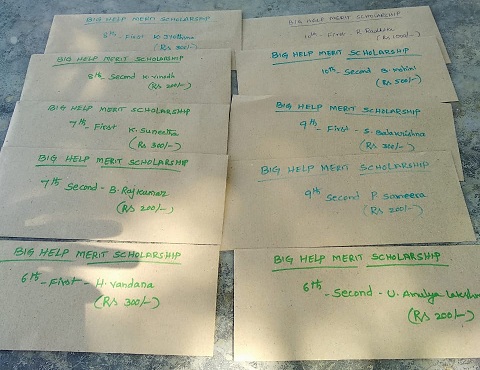 BIG HELP MERIT SCHOLARSHIP
8th - First K. Jyothsna
(Rs 300/-)
BIG HELP MERIT SCHOLARSHIP
8th - Second K. Vinodh
(Rs 200/-)
BIG HELP MERIT SCHOLARSHIP
7th - First K. Suneetha
(Rs 300/-)
BIG HELP MERIT SCHOLARSHIP
7th Second - B. Raj Kumar
(Rs 200/-)
BIG HELP MERIT SCHOLARSHIP
6th - First - H. Vandana
(Rs 300/-)
BIG HELP MERIT SCHOLARSHIP
10th - First R. Radhika
(Rs 1000/-)
BIG HELP MERIT SCHOLARSHIP
10th - Second B. Mohini
(Rs 500/-)
BIG HELP MERIT SCHOLARSHIP
9th - First - S. Balakrishna
(Rs 300/-)
BIG HELP MERIT SCHOLARSHIP
9th Second P. Sameera
(Rs 200/-)
BIG HELP MERIT SCHOLARSHIP
6th - Second - U. Amulya
(Rs 200/-)